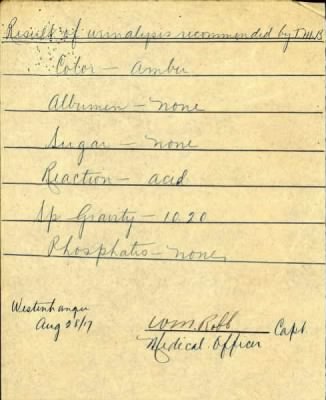 Result of urinalysis recommended by T.M.B
Color — amber
Albumen — none
Sugar — none
Reaction — acid
Sp Gravity — 10.20
Phosphatis — none
Westenhanger
Aug 28/17
WM Robb Capt
Medical Officer